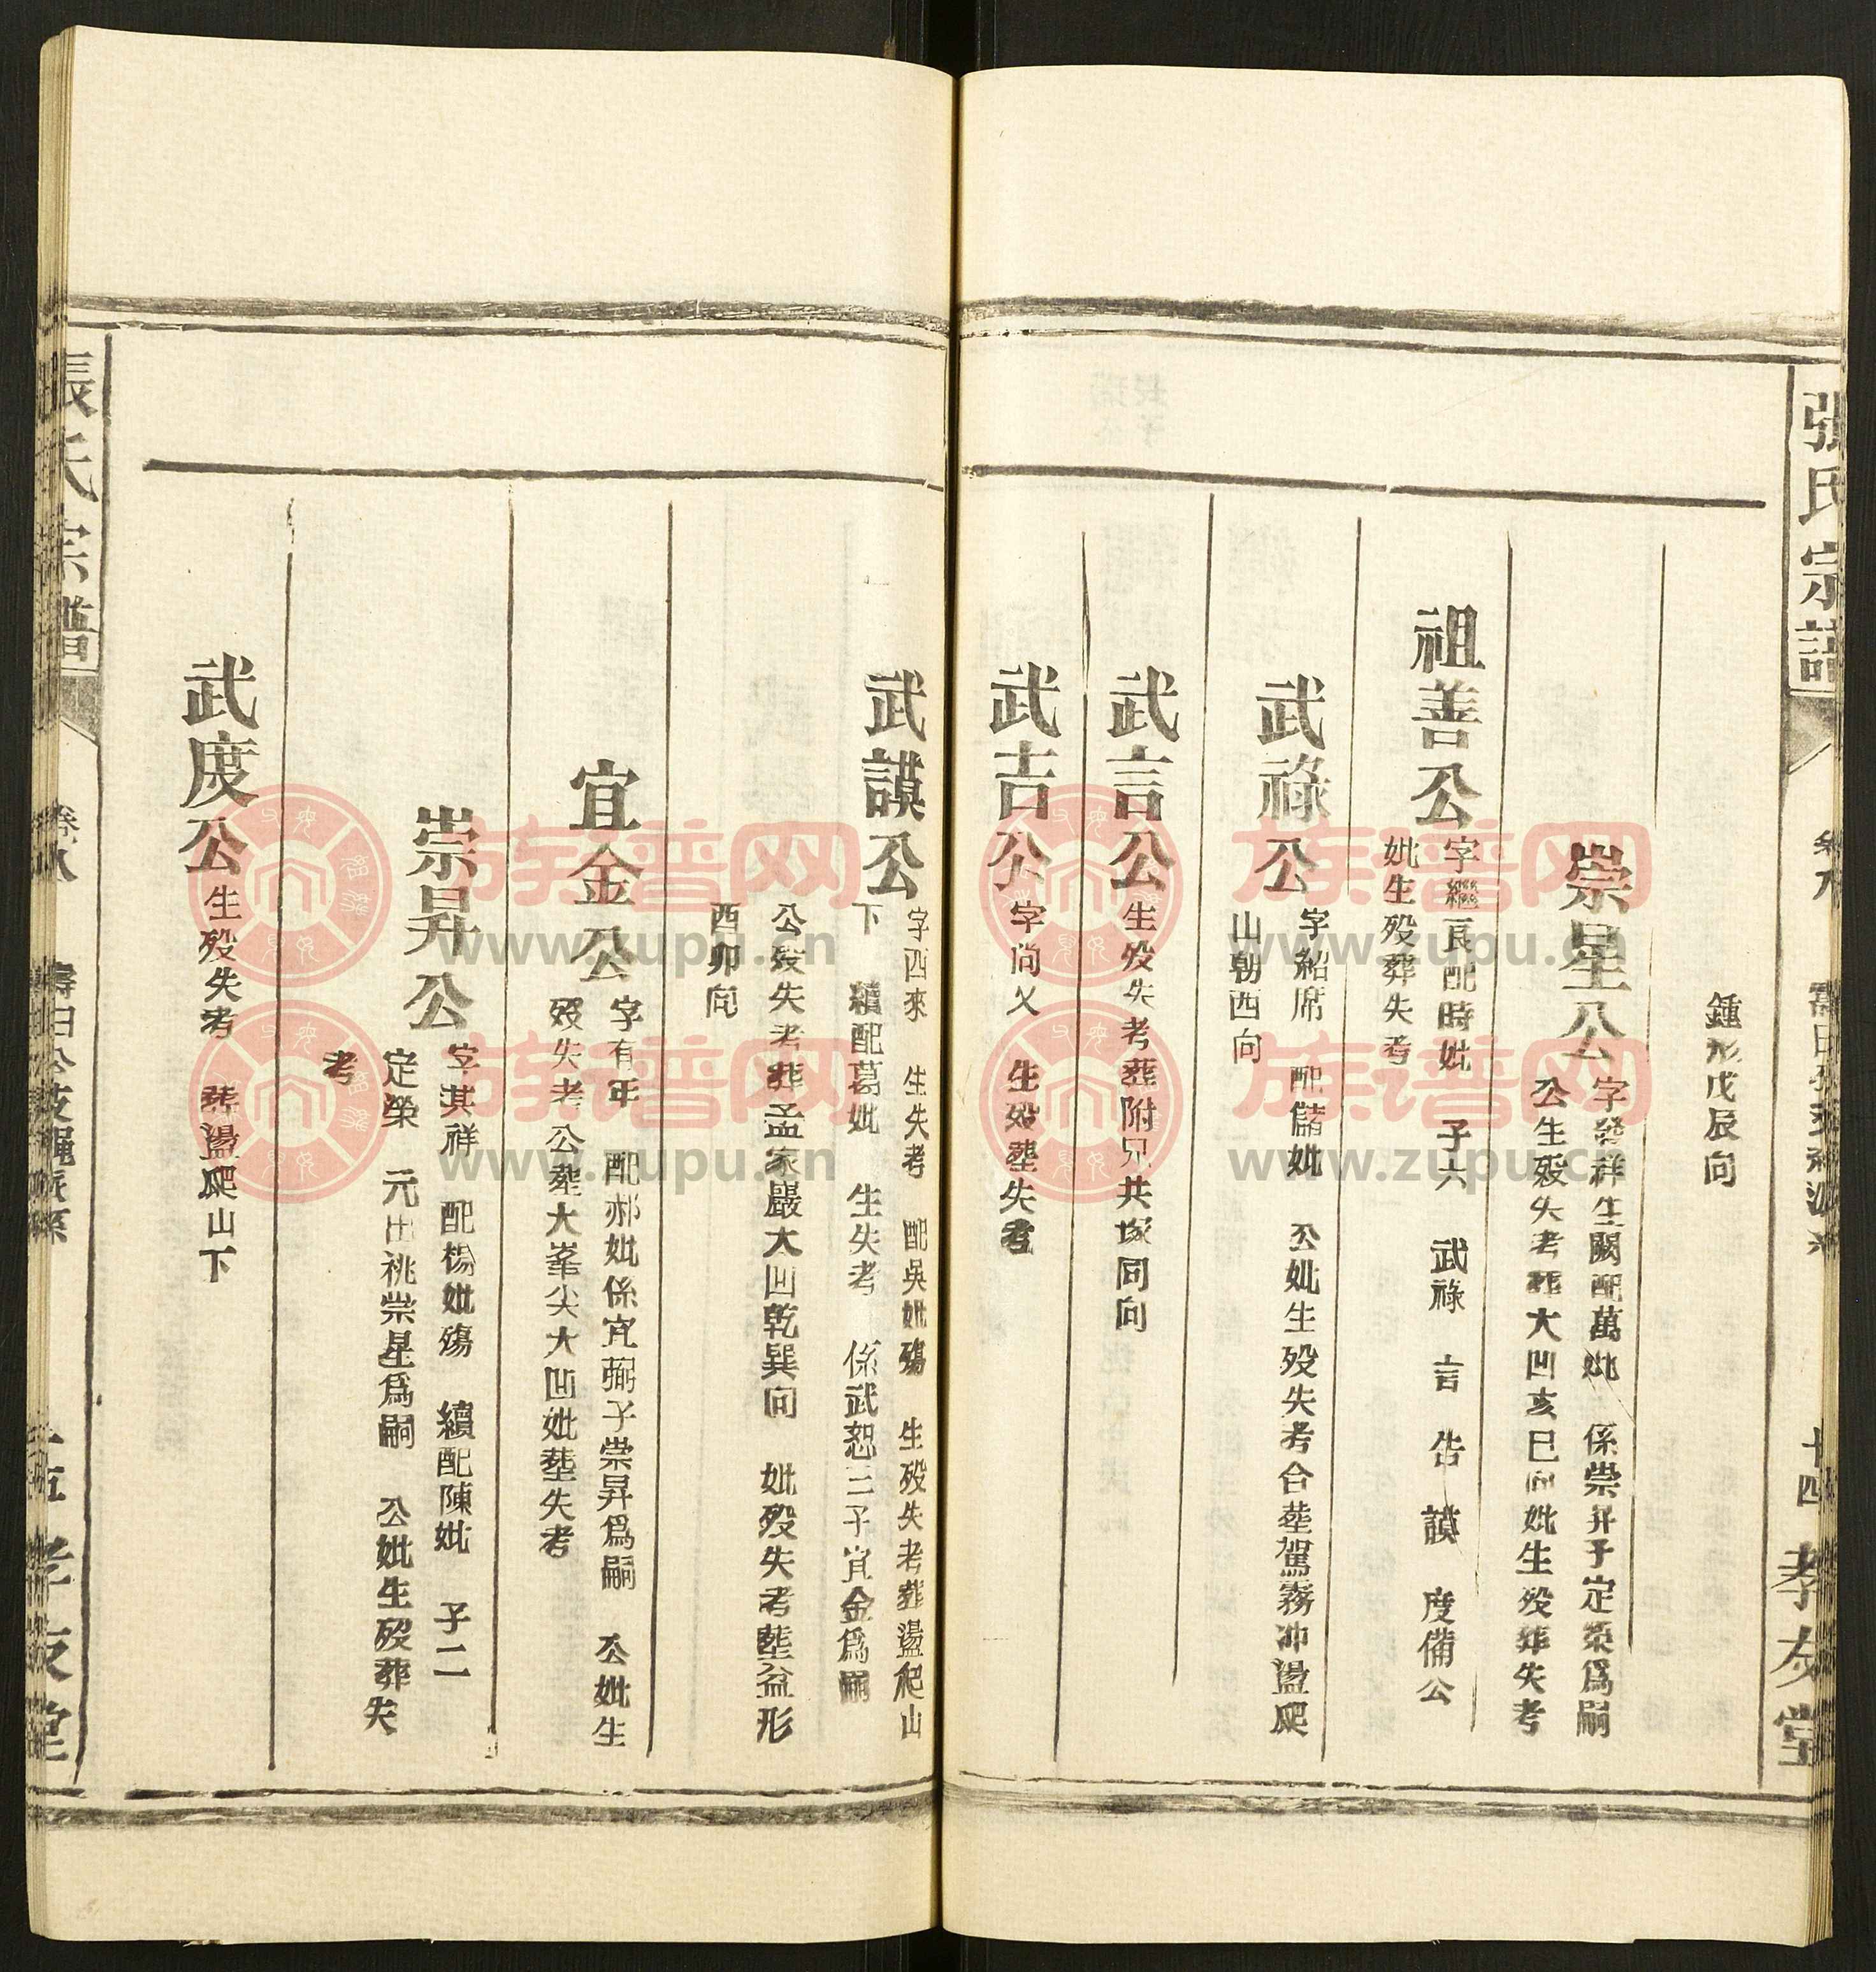 張氏宗譜
十四 孝友堂
鍾形戊辰向
崇星公
字發祥生闕配萬妣 係崇昇子定榮爲嗣
公生歿失考葬大凹亥巳向妣生歿葬失考
祖善公
字繼良配時妣 子六 武祿 言 告 謨 度備公
妣生歿葬失考
武祿公
字紹席 配儲妣 公妣生歿失考合塟駕霧冲盪爬
山朝西向
武言公
生歿失考葬附兄共塚同向
武吉公
字尚父 生歿塟失考
武謨公
字西來 生失考 配吳妣殤 生歿失考葬盪爬山
下 續配葛妣 生失考 係武恕三子宜金爲嗣
公歿失考葬孟家嚴大凹乾巽向 妣歿失考塟盆形
酉卯向
宜金公
字有年 配郝妣係宜弼子崇昇爲嗣 公妣生
歿失考公塟大峯尖大凹妣塟失考
崇昇公
字其祥 配楊妣殤 續配陳妣 子二
定榮 元出祧崇星爲嗣 公妣生歿葬失
考
武度公
生歿失考 葬盪爬山下
張氏宗譜
卷八
壽田公支繩派系
十五 孝友堂
族谱网
www.zupu.cn
族谱网
www.zupu.cn
族谱网
www.zupu.cn
族谱网
www.zupu.cn